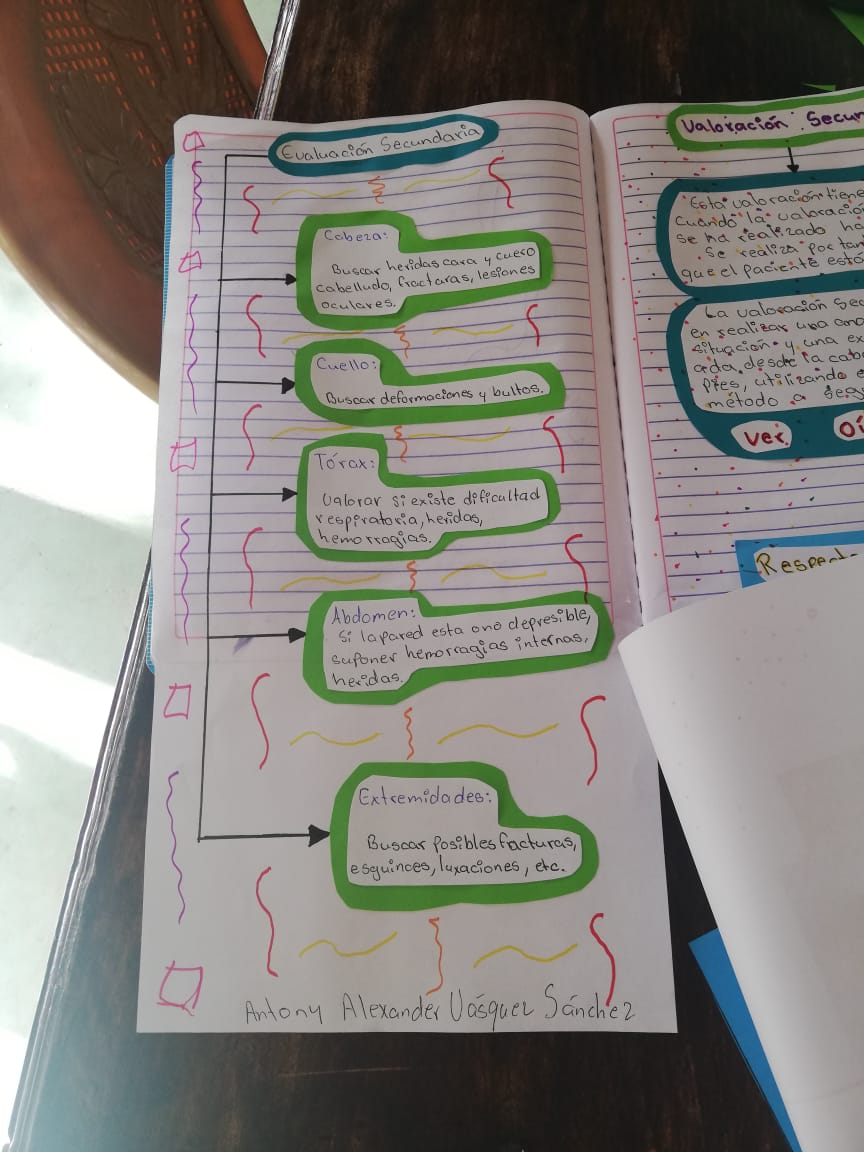 Evaluación Secundaria
Cabeza:
Buscar heridas cara y cuero
cabelludo, fracturas, lesiones
oculares.
Cuello:
Buscar deformaciones y bultos.
Tórax:
Valorar si existe dificultad
respiratoria, heridas,
hemorragias.
Abdomen:
Si la pared esta ono depresible,
suponer hemorragias internas,
heridas.
Extremidades:
Buscar posibles fracturas,
esguinces, luxaciones, etc.
Antony Alexander Vásquez Sánchez
Valoración Secun
Esta valoración tiene
cuando la valoración
se ha realizado
Se realiza
que el paciente está
La valoración Se
en realizar una
situación y una ex
ada, desde la cab
pies, utilizando e
método a seg
Ver
Oí
Respect